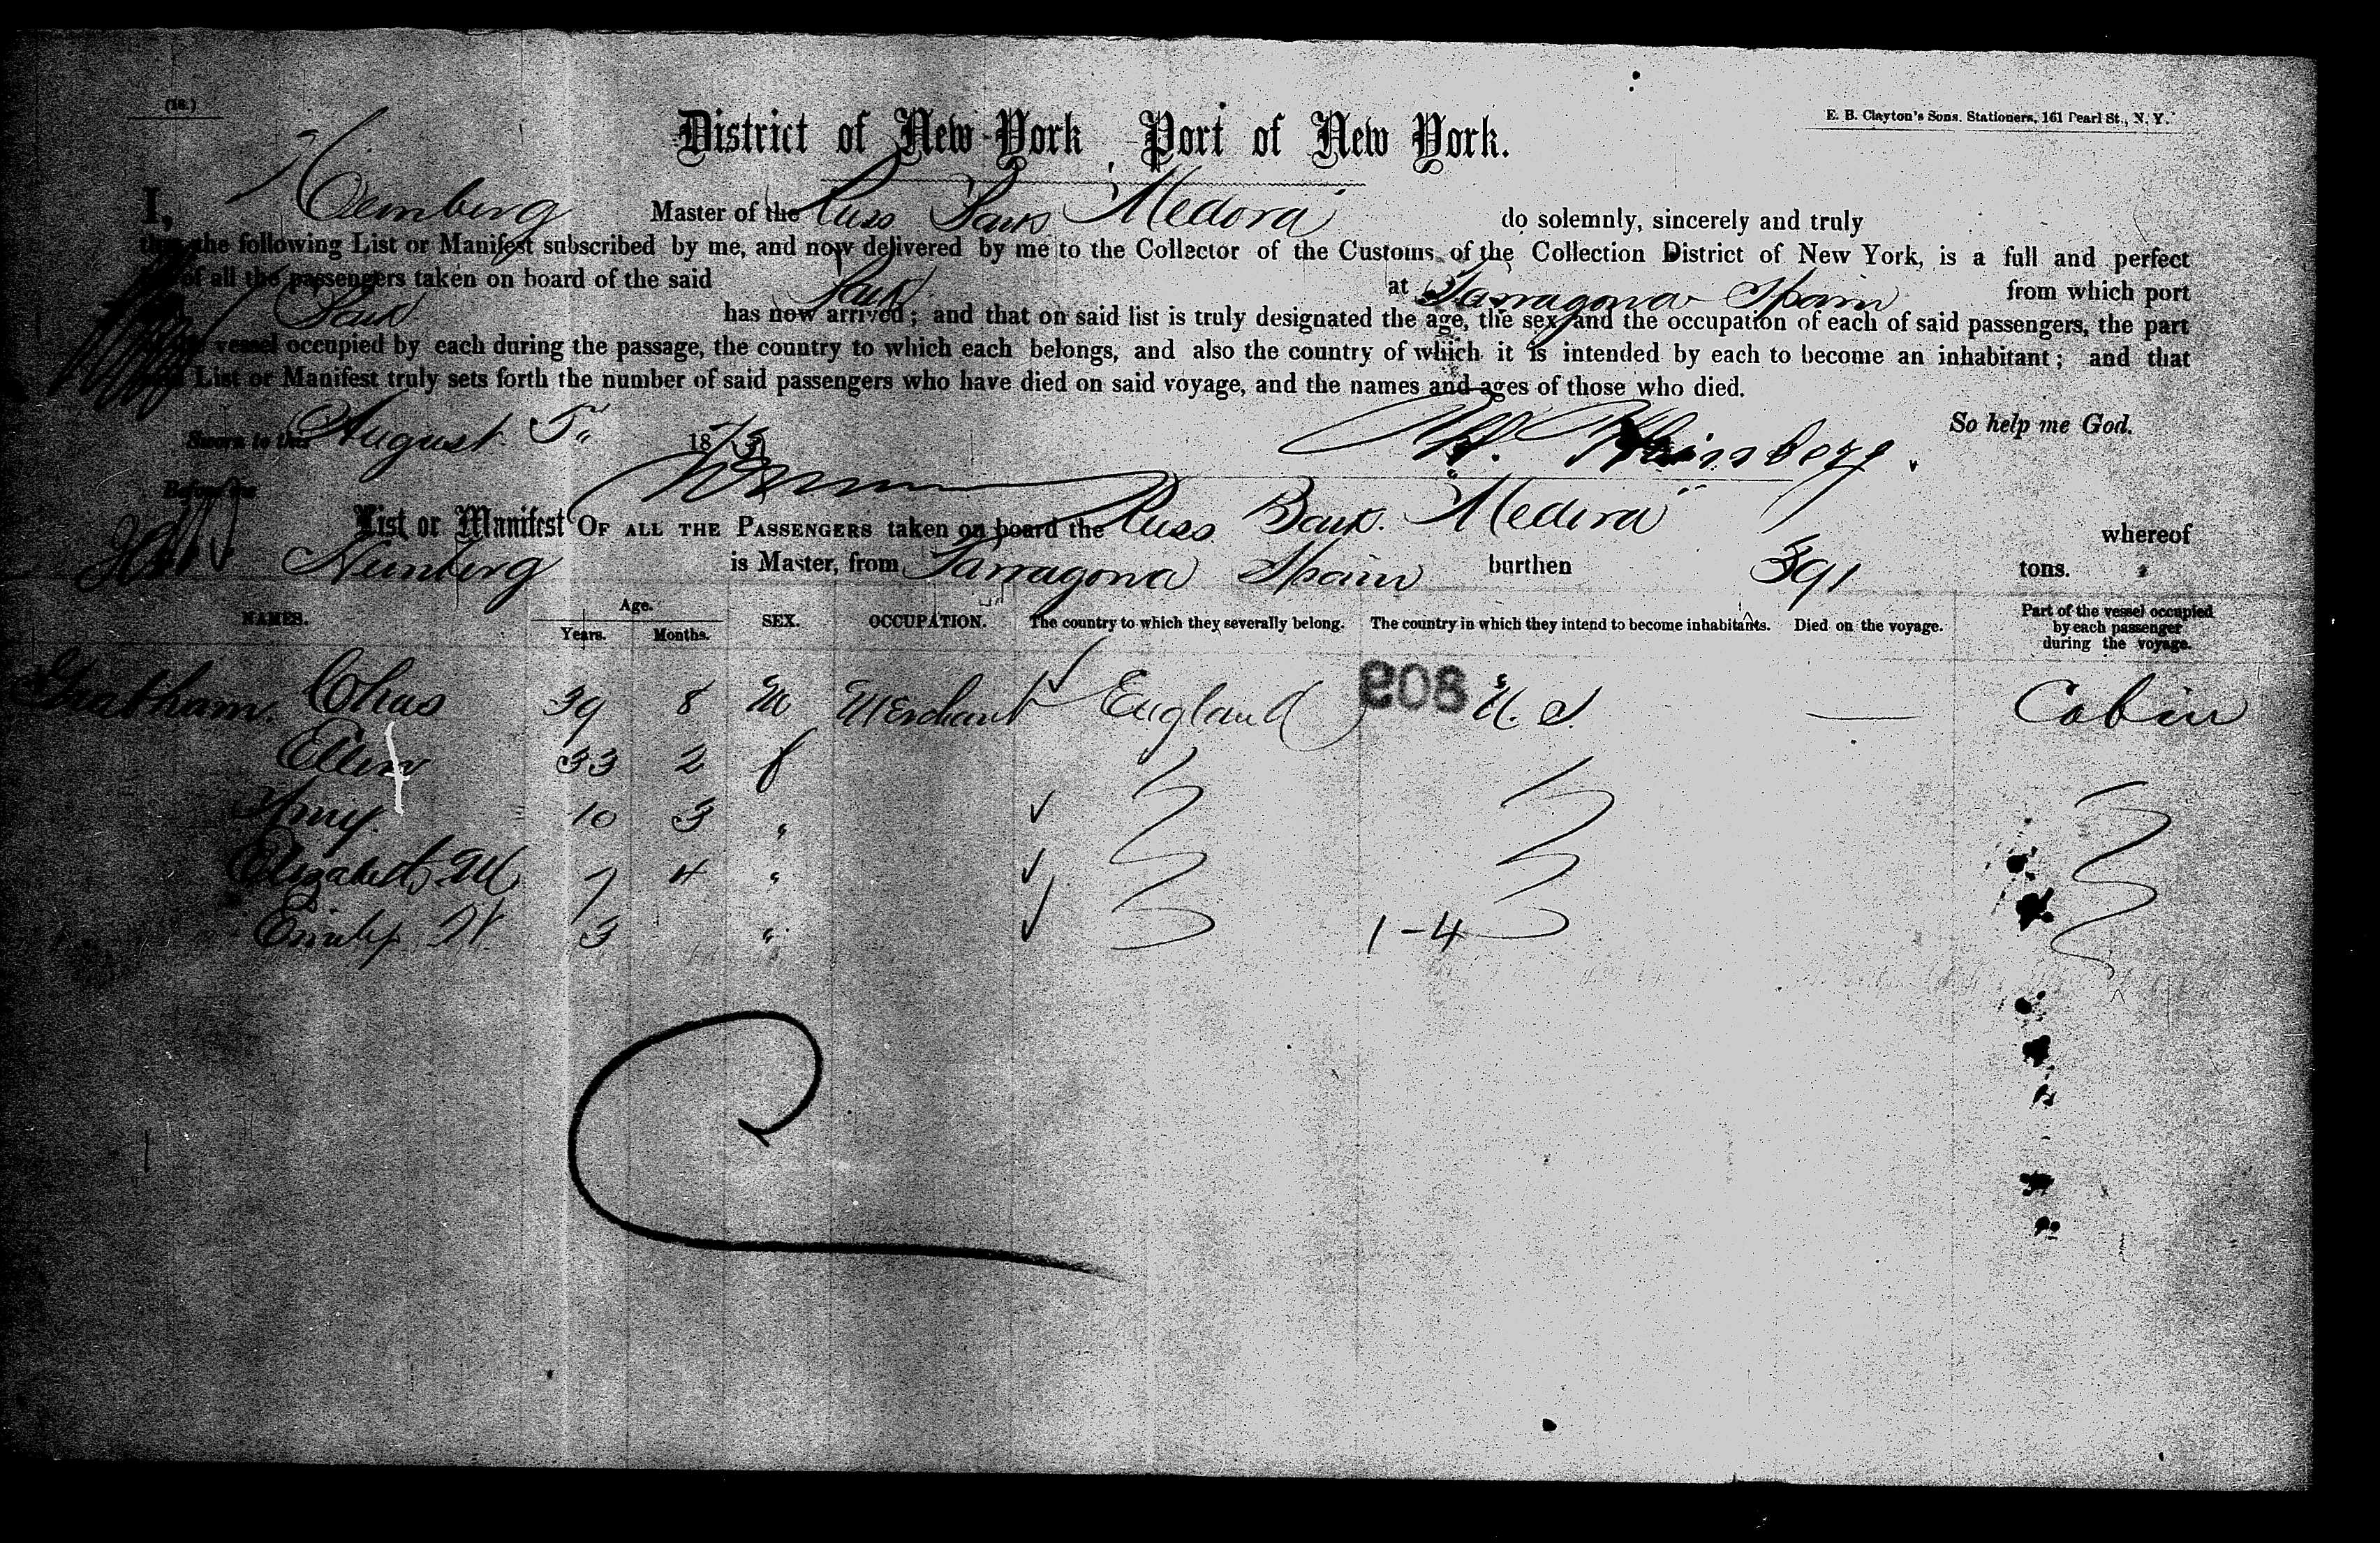 (18.)
E. B. Clayton's Sons, Stationers, 161 Pearl St., N. Y.
District of New-York Port of New York.
I, Master of the Russ Bark Medora do solemnly, sincerely and truly
the following List or Manifest subscribed by me, and now delivered by me to the Collector of the Customs of the Collection District of New York, is a full and perfect
of all the passengers taken on board of the said Bark at Tarragona Spain from which port
Bark has now arrived; and that on said list is truly designated the age, the sex and the occupation of each of said passengers, the part
vessel occupied by each during the passage, the country to which each belongs, and also the country of which it is intended by each to become an inhabitant; and that
List or Manifest truly sets forth the number of said passengers who have died on said voyage, and the names and ages of those who died.
Sworn to this August 5" 18 So help me God.
Before me
List or Manifest OF ALL THE PASSENGERS taken on board the Russ Bark. Medora whereof
is Master, from Tarragona Spain burthen 391 tons.
NAMES. Age. Years. Months. SEX. OCCUPATION. The country to which they severally belong. The country in which they intend to become inhabitants. Died on the voyage. Part of the vessel occupied by each passenger during the voyage.
Chas 39 8 M Merchant England 808 U. S. — Cabin
Ellen 33 2 f
Amy. 10 3 "
Elizabeth M 7 4 "
Emily H. 3 " 1-4